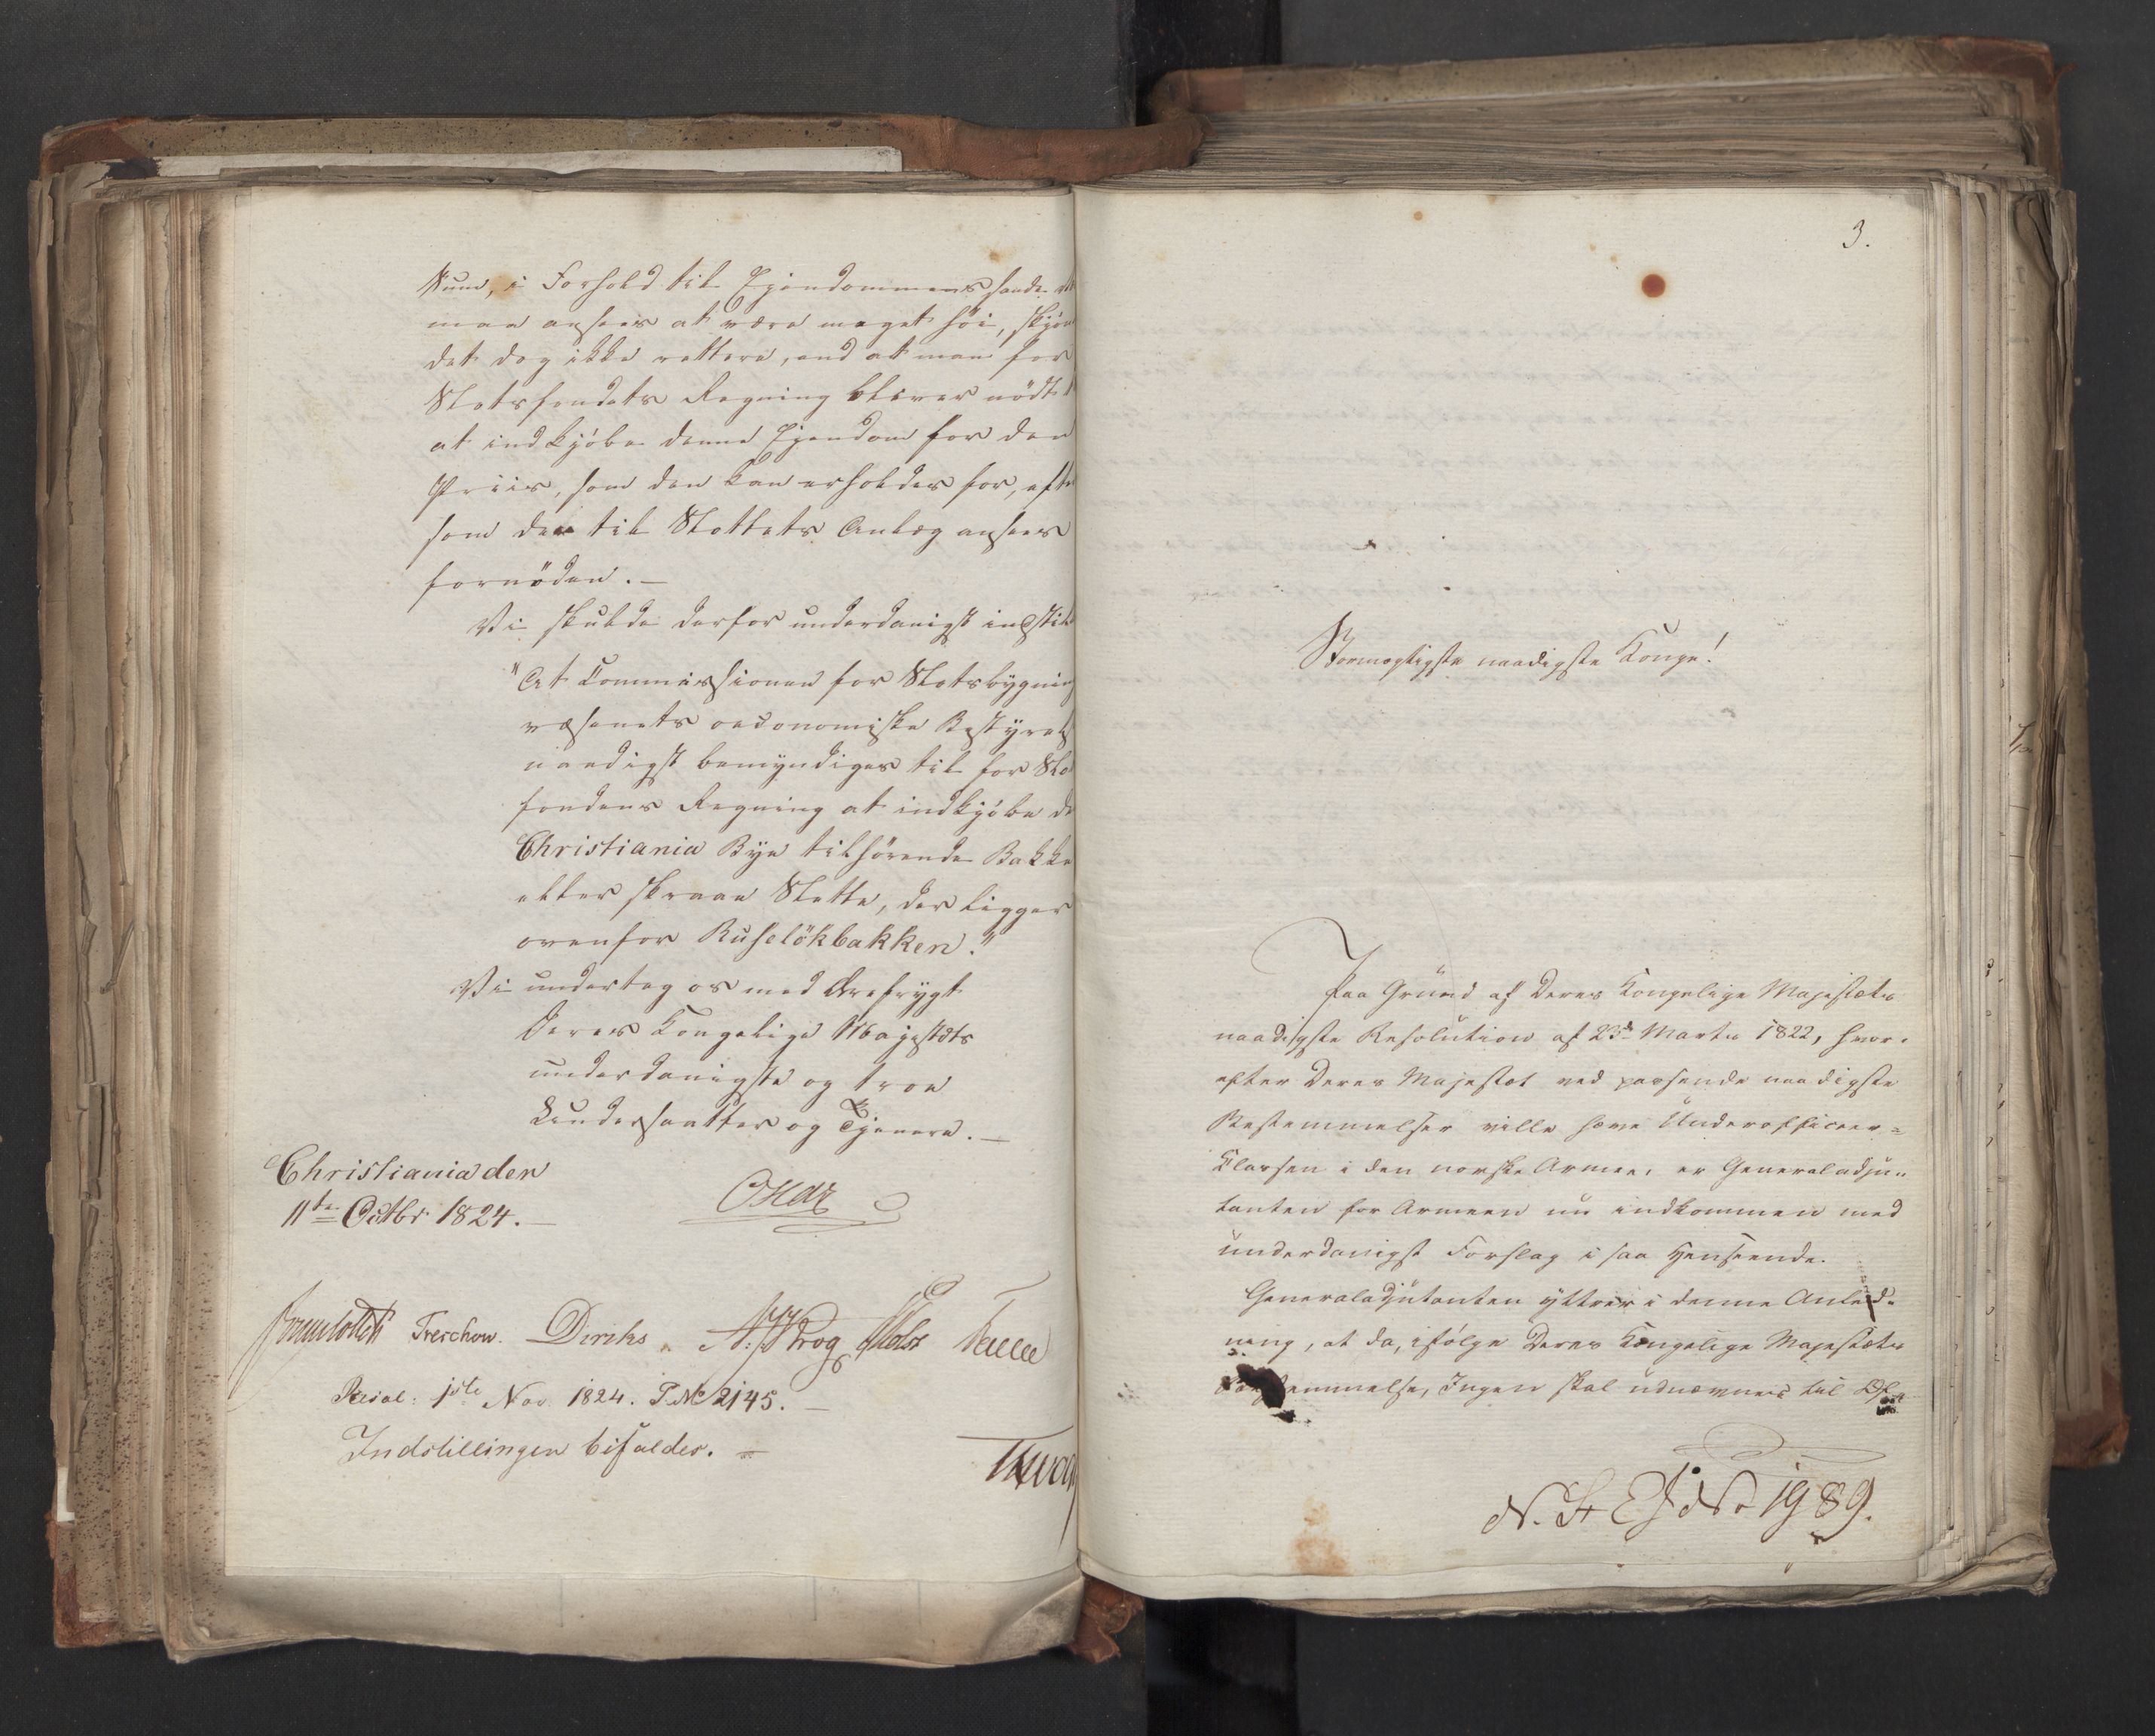 Sum, i Forhold til Ejendommens sande
maa ansees at være meget höi, skjön
det dog ikke rettere, end at man for
Slotsfondets Regning bliver nödt
at indkjöbe denne Ejendom for den
Priis, som den kan erholdes for, efter
som den til Slottets Anlæg ansees
fornöden. —
Vi skulde derfor underdanigst indstil
"At Commissionen for Slotsbygning
væsenets oeconomiske Bestyrels
naadigst bemyndiges til for Slo
fondens Regning at indkjöbe de
Christiania Bye tilhörende Bakke
eller skraae Slette, der ligger
ovenfor Ruselökbakken."
Vi undertegne os med Ærefrygt
Deres Kongelige Majestæts
underdanigste og troe
Undersaatter og Tjenere. —
Christiania den
11te Octbr 1824. —
Oscar
Treschow. Diriks. Krog
Resol: 1ste Nov 1824. P. No 2145. —
Indstillingen bifaldes. —
3.
Stormægtigste naadigste Konge!
Paa Grund af Deres Kongelige Majestæts
naadigste Resolution af 23de Marts 1822, hvor-
efter Deres Majestæt ved passende naadigste
Bestemmelser ville hæve Underofficeer=
Classen i den norske Armee, er Generaladju-
tanten for Armeen nu indkommen med
underdanigst Forslag i saa Henseende.
Generaladjutanten yttrer i denne Anled-
ning, at da, ifölge Deres Kongelige Majestæts
Bestemmelse, Ingen skal udnævnes til Of-
No 1989.